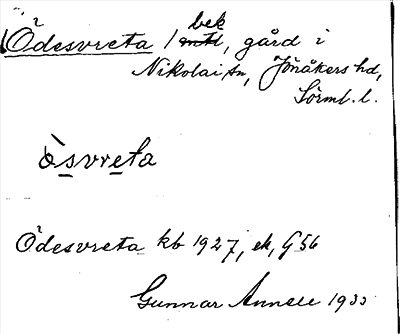 Ödesvreta 1 bek, gård i
Nikolai sn, Jönåkers hd,
Sörml. l.
ò̀svreta
Ödesvreta kb 1927, ek, G 56
Gunnar Annell 1933